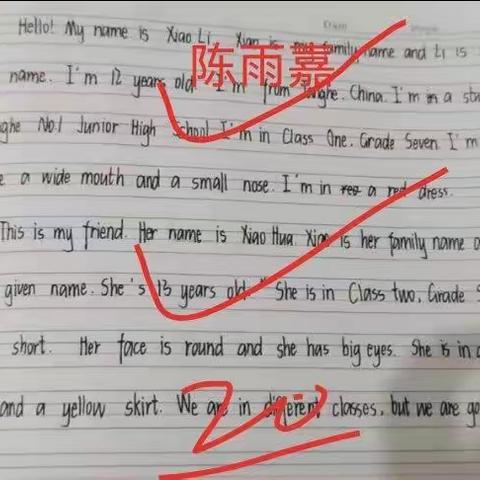 Hello! My name is Xiao Li. Xian is my family name and Li is
陈雨嘉
name. I'm 12 years old. I'm from Tonghe. China. I'm in a stu
ghe No.1 Junior High School I'm in Class One. Grade Seven. I'm
a wide mouth and a small nose. I'm in a red dress.
This is my friend. Her name is Xiao Hua. Xian is her family name a
given name. She's 13 years old. She is in Class two, Grade S
short. Her face is round and she has big eyes. She is in a
and a yellow skirt. We are in different classes, but we are go